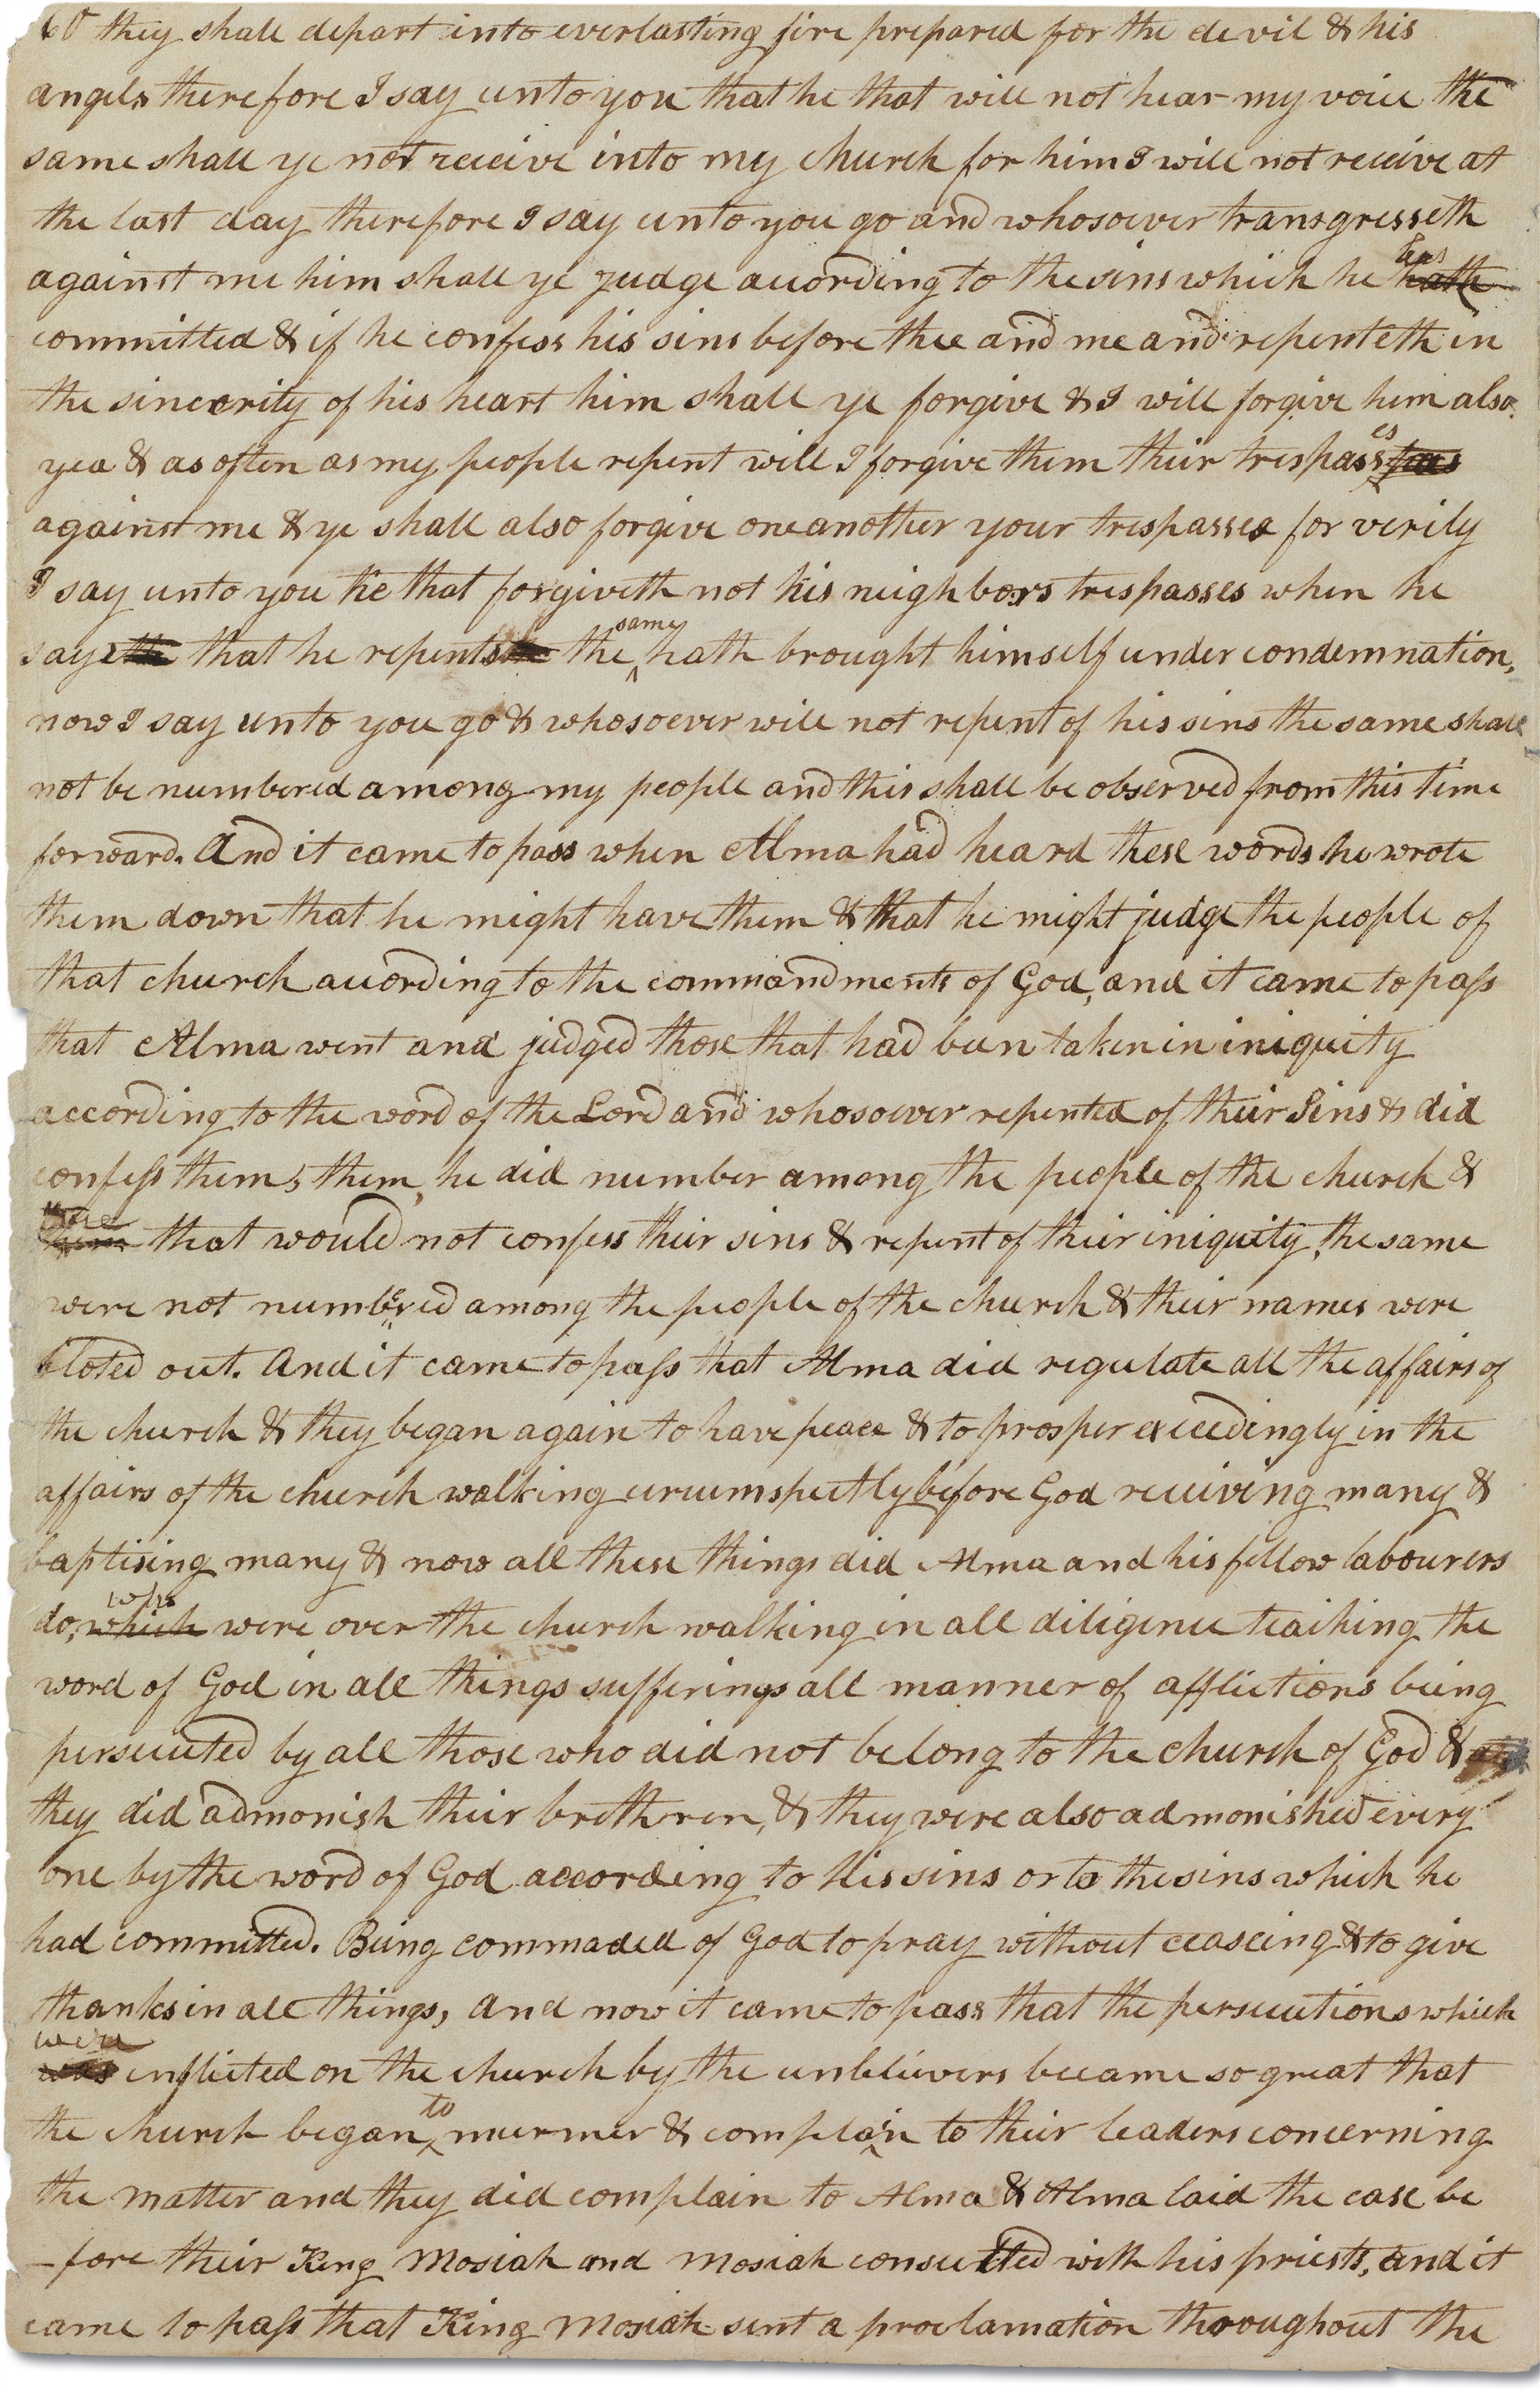 they shall depart into everlasting fire prepared for the devil & his
angels therefore I say unto you that he that will not hear my voice the
same shall ye not receive into my church for him I will not receive at
the last day therefore I say unto you go and whosoever transgresseth
against me him shall ye judge according to the sins which he has hath
committed & if he confess his sins before thee and me and repenteth in
the sincerity of his heart him shall ye forgive & I will forgive him also
yea & as often as my people repent will I forgive them their trespasses
against me & ye shall also forgive one another your trespasses for verily
I say unto you he that forgiveth not his neighbors trespasses when he
says that he repents the same hath brought himself under condemnation,
now I say unto you go & whosoever will not repent of his sins the same shall
not be numbered among my people and this shall be observed from this time
forward. And it came to pass when Alma had heard these words he wrote
them down that he might have them & that he might judge the people of
that church according to the commandments of God, and it came to pass
that Alma went and judged those that had been taken in iniquity
according to the word of the Lord and whosoever repented of their Sins & did
confess them, them, he did number among the people of the church &
that would not confess their sins & repent of their iniquity, the same
were not numbered among the people of the church & their names were
bloted out. And it came to pass that Alma did regulate all the affairs of
the church & they began again to have peace & to prosper exceedingly in the
affairs of the church walking circumspectly before God receiving many &
baptising many & now all these things did Alma and his fellow labourers
do, who which were over the church walking in all diligence teaching the
word of God in all things sufferings all manner of afflictions being
persecuted by all those who did not belong to the church of God &
they did admonish their brethren, & they were also admonished every
one by the word of God according to his sins or to the sins which he
had committed. Being commaded of God to pray without ceaseing & to give
thanks in all things, and now it came to pass that the persecutions which
were was inflicted on the church by the unbelievers became so great that
the church began to murmer & complain to their leaders concerning
the matter and they did complain to Alma & Alma laid the case be
-fore their King Mosiah and Mosiah consulted with his priests, and it
came to pass that King Mosiah sent a proclamation throughout the